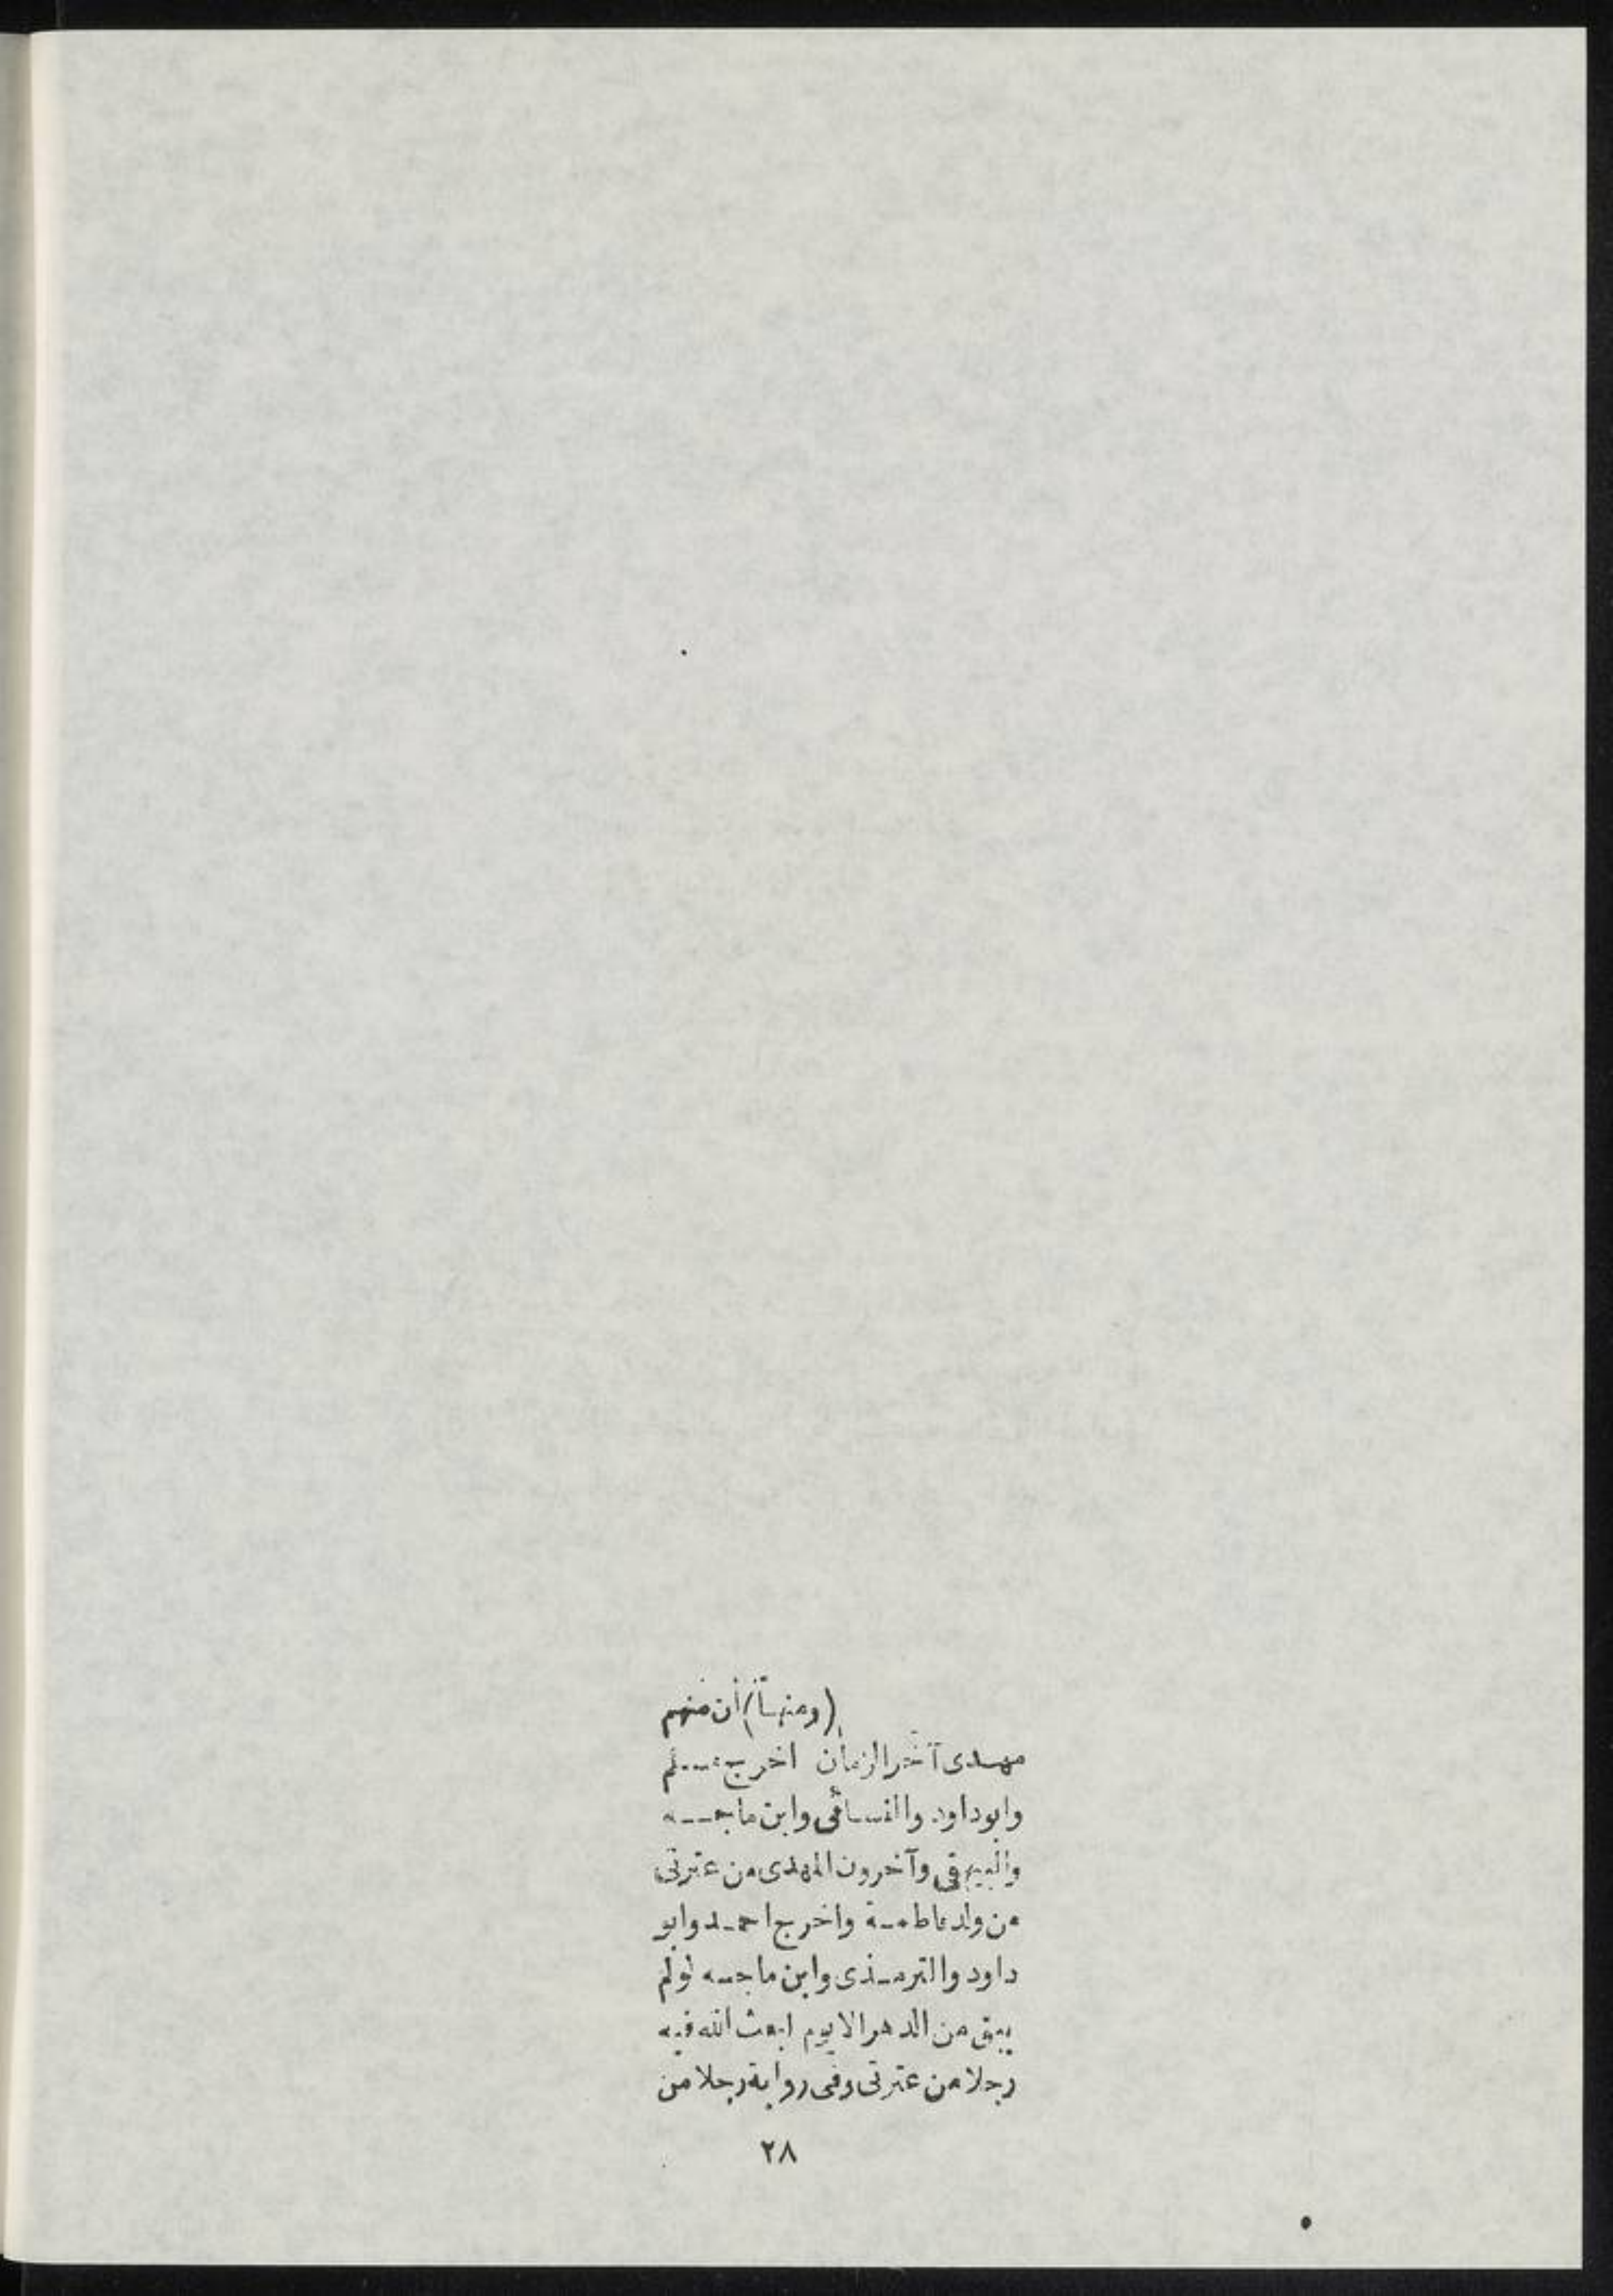 (ومنها) أن منهم
مهدى آخر الزمان اخرج مسلم
وابوداود والنسائى وابن ماجه
والبيهقى وآخرون المهدى من عترتى
من ولد فاطمة واخرج احمد وابو
داود والترمذى وابن ماجه لو لم
يبق من الدهر الا يوم لبعث الله فيه
رجلا من عترتى وفى رواية رجلا من
٢٨